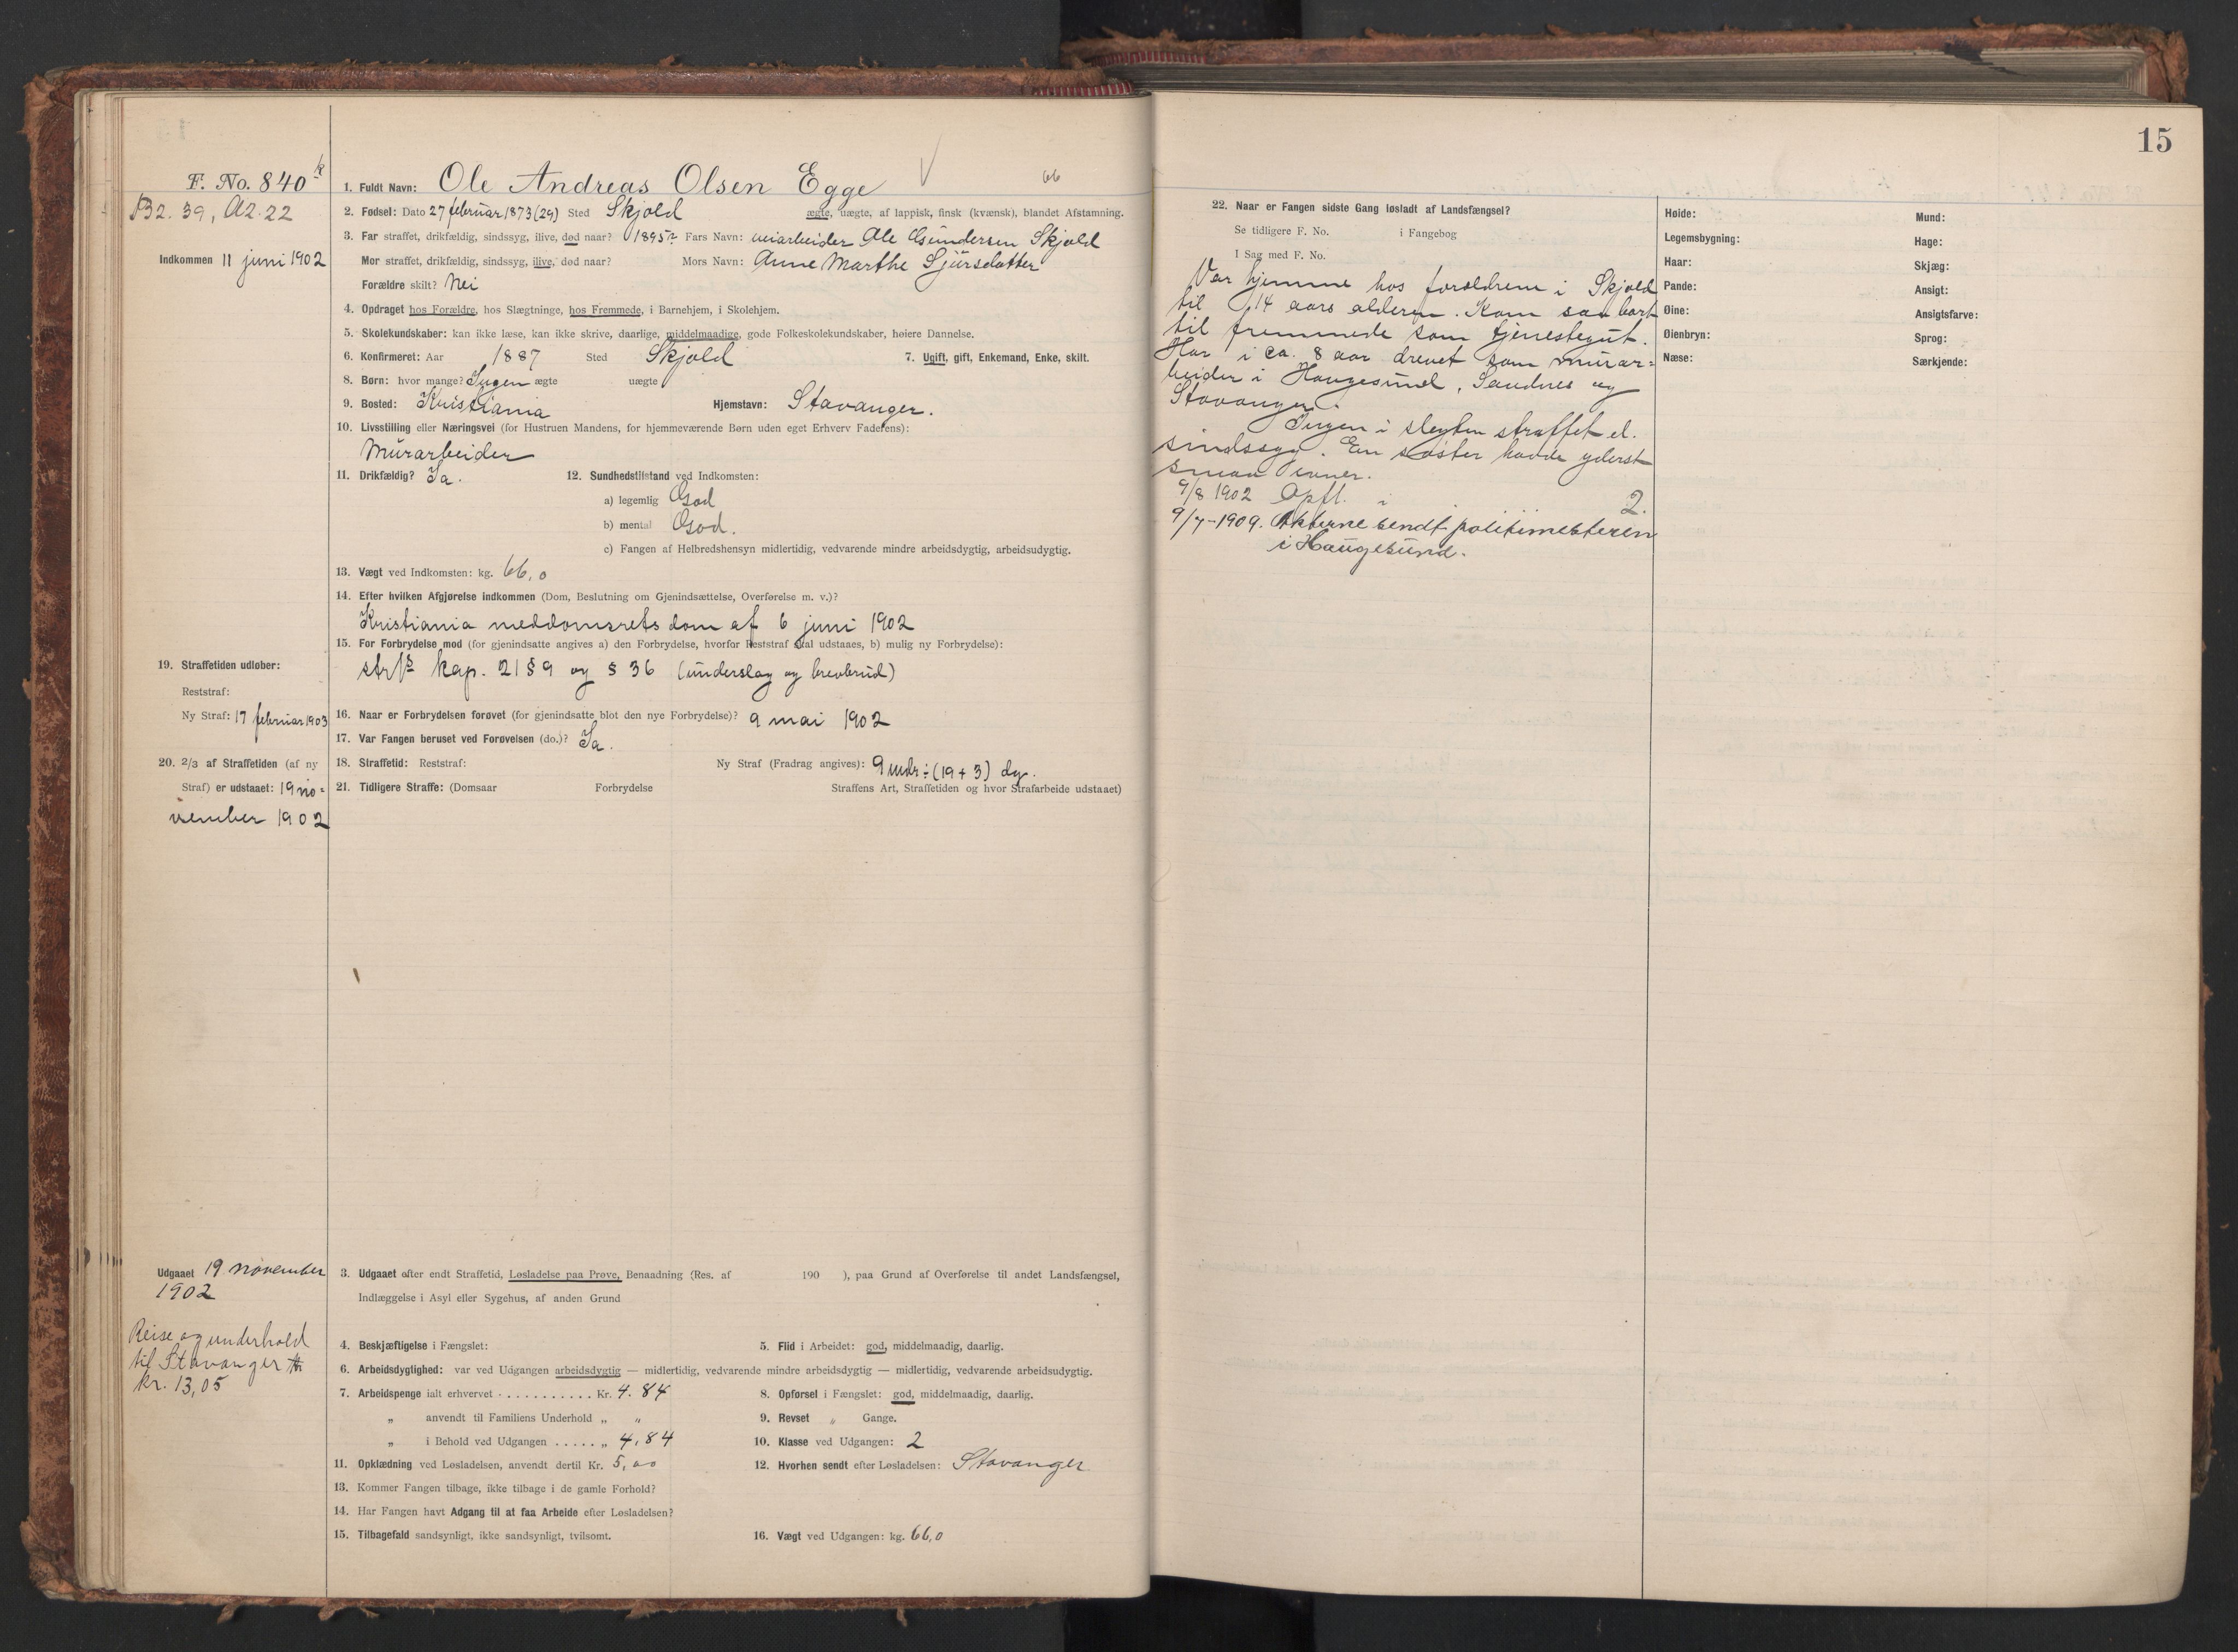 F. No. 840
B2. 39, A2. 22
Indkommen 11 juni 1902
1. Fuldt Navn: Ole Andreas Olsen Egge
66
2. Fødsel: Dato 27 februar 1873 (29) Sted Skjold ægte, uægte, af lappisk, finsk (kvænsk), blandet Afstamning.
3. Far straffet, drikfældig, sindssyg, ilive, død naar? 1895? Fars Navn: veiarbeider Ole Gundersen Skjold
Mor straffet, drikfældig, sindssyg, ilive, død naar? Mors Navn: Anne Marthe Sjursdatter
Forældre skilt? Nei
4. Opdraget hos Forældre, hos Slægtninge, hos Fremmede, i Barnehjem, i Skolehjem.
5. Skolekundskaber: kan ikke læse, kan ikke skrive, daarlige, middelmaadige, gode Folkeskolekundskaber, høiere Dannelse.
6. Konfirmeret: Aar 1887 Sted Skjold 7. Ugift, gift, Enkemand, Enke, skilt.
8. Børn: hvor mange? Ingen ægte uægte
9. Bosted: Kristiania Hjemstavn: Stavanger.
10. Livsstilling eller Næringsvei (for Hustruen Mandens, for hjemmeværende Børn uden eget Erhverv Faderens):
Murarbeider
11. Drikfældig? Ja. 12. Sundhedstilstand ved Indkomsten:
a) legemlig God
b) mental God.
c) Fangen af Helbredshensyn midlertidig, vedvarende mindre arbeidsdygtig, arbeidsudygtig.
13. Vægt ved Indkomsten: kg. 66,0
14. Efter hvilken Afgjørelse indkommen (Dom, Beslutning om Gjenindsættelse, Overførelse m. v.)?
Kristiania meddomsrets dom af 6 juni 1902
15. For Forbrydelse mod (for gjenindsatte angives a) den Forbrydelse, hvorfor Reststraf skal udstaaes, b) mulig ny Forbrydelse):
kap. 21 § 9 og § 36 (underslag og brevbrud)
19. Straffetiden udløber:
Reststraf:
Ny Straf: 17 februar 1903
16. Naar er Forbrydelsen forøvet (for gjenindsatte blot den nye Forbrydelse)? 9 mai 1902
17. Var Fangen beruset ved Forøvelsen (do.)? Ja.
20. 2/3 af Straffetiden (af ny
Straf) er udstaaet: 19 no-
vember 1902
18. Straffetid: Reststraf: Ny Straf (Fradrag angives): 9 mdr ÷ (19 + 3) dg.
21. Tidligere Straffe: (Domsaar Forbrydelse Straffens Art, Straffetiden og hvor Strafarbeide udstaaet)
Udgaaet 19 november
1902
Reise og underhold
til Stavanger
kr. 13,05
3. Udgaaet efter endt Straffetid, Løsladelse paa Prøve, Benaadning (Res. af 190 ), paa Grund af Overførelse til andet Landsfængsel,
Indlæggelse i Asyl eller Sygehus, af anden Grund
4. Beskjæftigelse i Fængslet: 5. Flid i Arbeidet: god, middelmaadig, daarlig.
6. Arbeidsdygtighed: var ved Udgangen arbeidsdygtig — midlertidig, vedvarende mindre arbeidsdygtig — midlertidig, vedvarende arbeidsudygtig.
7. Arbeidspenge ialt erhvervet . . . . . . . . . . . Kr. 4.84 8. Opførsel i Fængslet: god, middelmaadig, daarlig.
„ anvendt til Familiens Underhold „ „ 9. Revset „ Gange.
„ i Behold ved Udgangen . . . . . „ 4,84 10. Klasse ved Udgangen: 2
11. Opklædning ved Løsladelsen, anvendt dertil Kr. 5,00 12. Hvorhen sendt efter Løsladelsen: Stavanger
13. Kommer Fangen tilbage, ikke tilbage i de gamle Forhold?
14. Har Fangen havt Adgang til at faa Arbeide efter Løsladelsen?
15. Tilbagefald sandsynligt, ikke sandsynligt, tvilsomt. 16. Vægt ved Udgangen: kg. 66,0
15
22. Naar er Fangen sidste Gang løsladt af Landsfængsel?
Se tidligere F. No. i Fangebog
I Sag med F. No.
Var hjemme hos forældrene i Skjold
til 14 aars alderen. Kom saa bort
til fremmede som tjenestegut.
Har i ca. 8 aar drevet som murar-
beider i Haugesund, Sandnes og
Stavanger.
Ingen i slegten straffet el.
sindssyg. En søster havde yderst
smaa evner.
9/8 1902 Opfl. i 2.
9/7-1909. Akterne sendt politimesteren
i Haugesund.
Høide:
Legemsbygning:
Haar:
Pande:
Øine:
Øienbryn:
Næse:
Mund:
Hage:
Skjæg:
Ansigt:
Ansigtsfarve:
Sprog:
Særkjende: